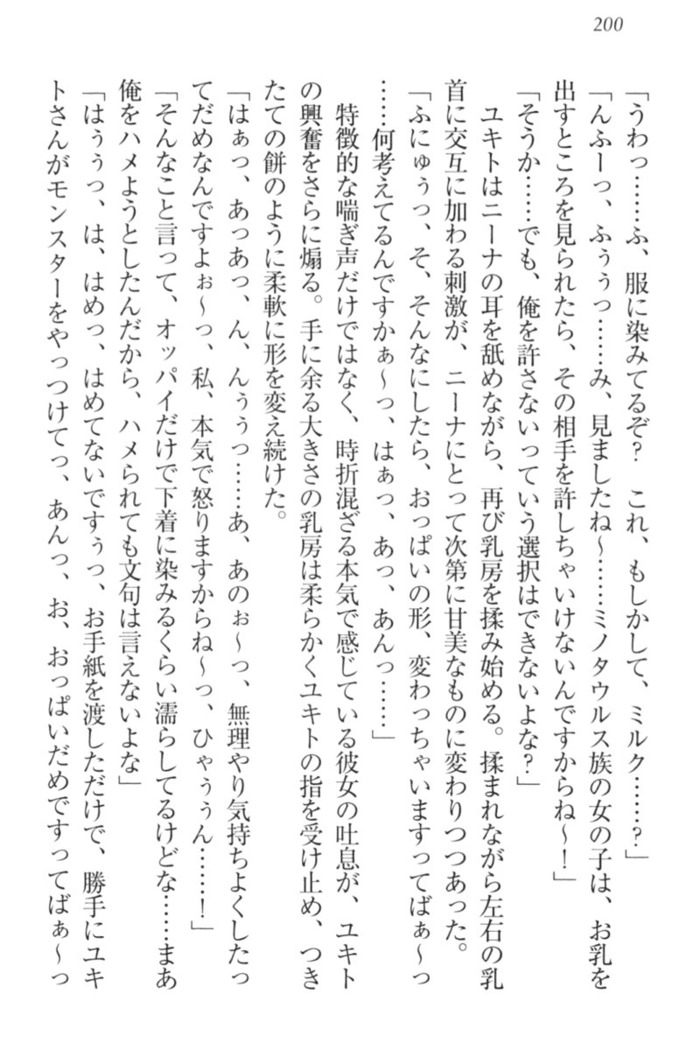 200
「うわっ……ふ、服に染みてるぞ？　これ、もしかして、ミルク……？」
「んふーっ、ふぅぅっ……み、見ましたね～……ミノタウルス族の女の子は、お乳を
出すところを見られたら、その相手を許しちゃいけないんですからね～！」
「そうか……でも、俺を許さないっていう選択はできないよな？」
　ユキトはニーナの耳を舐めながら、再び乳房を揉み始める。揉まれながら左右の乳
首に交互に加わる刺激が、ニーナにとって次第に甘美なものに変わりつつあった。
「ふにゅぅっ、そ、そんなにしたら、おっぱいの形、変わっちゃいますってばぁ～っ
……何考えてるんですかぁ～っ、はぁっ、あっ、あんっ……」
　特徴的な喘ぎ声だけではなく、時折混ざる本気で感じている彼女の吐息が、ユキト
の興奮をさらに煽る。手に余る大きさの乳房は柔らかくユキトの指を受け止め、つき
たての餅のように柔軟に形を変え続けた。
「はぁっ、あっあっ、ん、んぅぅっ……あ、あのぉ～っ、無理やり気持ちよくしたっ
てだめなんですよぉ～っ、私、本気で怒りますからね～っ、ひゃぅぅん……！」
「そんなこと言って、オッパイだけで下着に染みるくらい濡らしてるけどな……まあ
俺をハメようとしたんだから、ハメられても文句は言えないよな」
「はぅぅっ、は、はめっ、はめてないですぅっ、お手紙を渡しただけで、勝手にユキ
トさんがモンスターをやっつけてっ、あんっ、お、おっぱいだめですってばぁ～っ